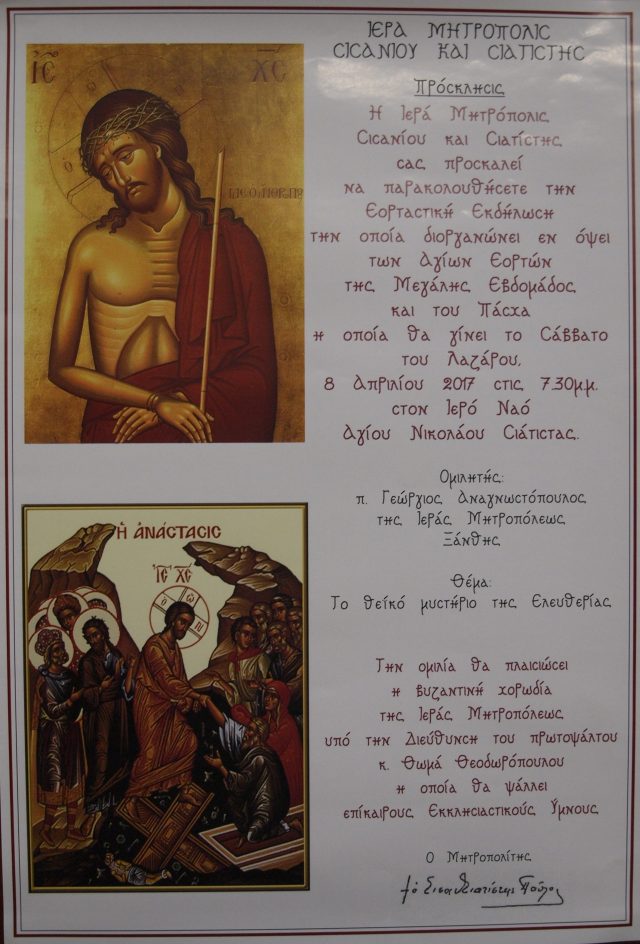 ΙΕΡΑ ΜΗΤΡΟΠΟΛΙΣ
ΣΙΣΑΝΙΟΥ ΚΑΙ ΣΙΑΤΙΣΤΗΣ
Πρόσκλησις
Η Ιερά Μητρόπολις
Σισανίου και Σιατίστης
σας προσκαλεί
να παρακολουθήσετε την
Εορταστική Εκδήλωση
την οποία διοργανώνει εν όψει
των Αγίων Εορτών
της Μεγάλης Εβδομάδος
και του Πάσχα
η οποία θα γίνει το Σάββατο
του Λαζάρου,
8 Απριλίου 2017 στις 7.30μ.μ.
στον Ιερό Ναό
Αγίου Νικολάου Σιάτιστας.
Ομιλητής:
π. Γεώργιος Αναγνωστόπουλος
της Ιεράς Μητροπόλεως
Ξάνθης
Θέμα:
Το θεϊκό μυστήριο της Ελευθερίας
Την ομιλία θα πλαισιώσει
η βυζαντινή χορωδία
της Ιεράς Μητροπόλεως
υπό την Διεύθυνση του πρωτοψάλτου
κ. Θωμά Θεοδωρόπουλου
η οποία θα ψάλλει
επίκαιρους Εκκλησιαστικούς Ύμνους
Ο Μητροπολίτης
ὁ Σισανίου Σιατίστης Παῦλος
ΙϹ ΧϹ
Ἡ ἈΝΆϹΤΑϹΙϹ
ΙϹ ΧϹ
Ὁ Ω Ν